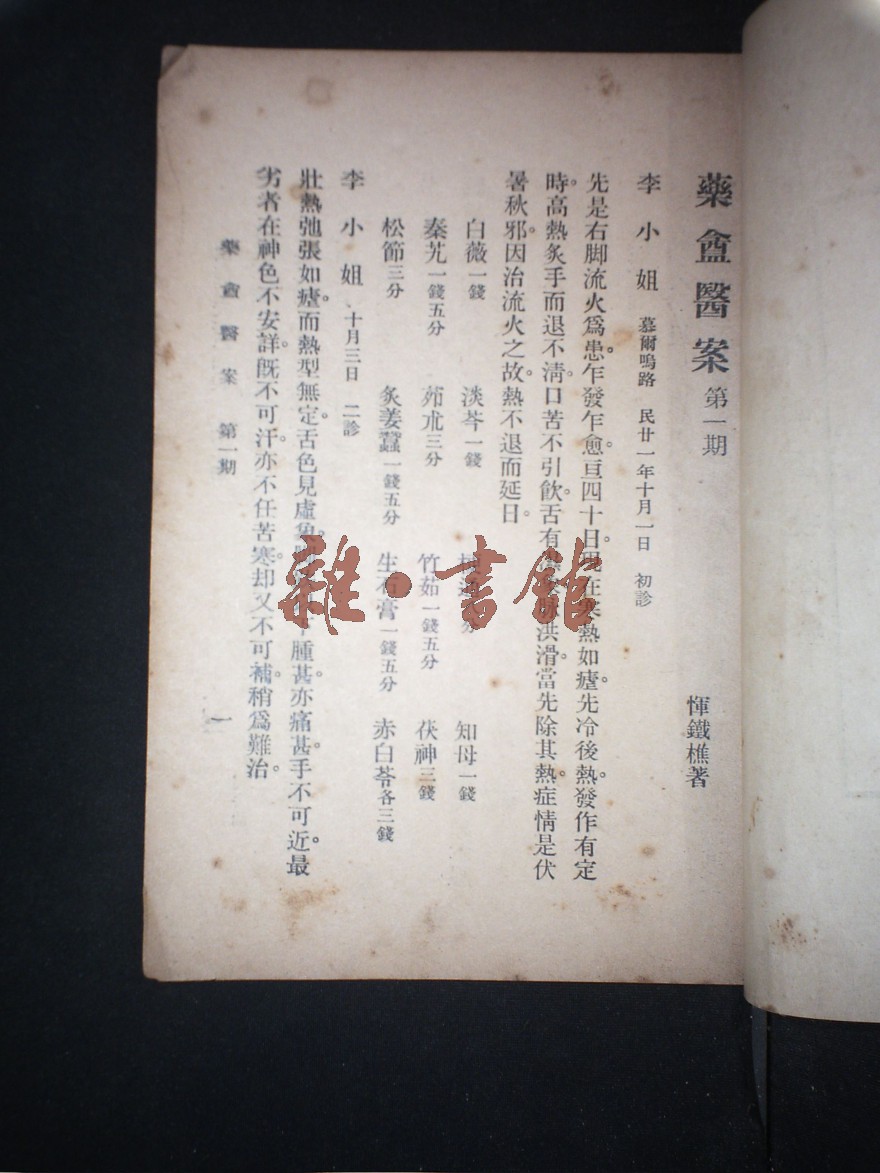 藥盦醫案 第一期
惲鐵樵著
李小姐 慕爾鳴路 民廿一年十月一日 初診
先是右脚流火爲患。乍發乍愈。亘四十日。在熱如瘧。先冷後熱。發作有定
時。高熱炙手而退不淸。口苦不引飮。舌有洪滑。當先除其熱。症情是伏
暑秋邪。因治流火之故。熱不退而延日。
白薇一錢 淡芩一錢 知母一錢
秦艽一錢五分 茆朮三分 竹茹一錢五分 茯神三錢
松節三分 炙姜蠶一錢五分 生石膏一錢五分 赤白苓各三錢
李小姐 十月三日 二診
壯熱弛張如瘧。而熱型無定。舌色見虛象。腫甚。亦痛甚。手不可近。最
劣者在神色不安詳。旣不可汗。亦不任苦寒。却又不可補。稍爲難治。
藥盦醫案 第一期
一
雜·書館